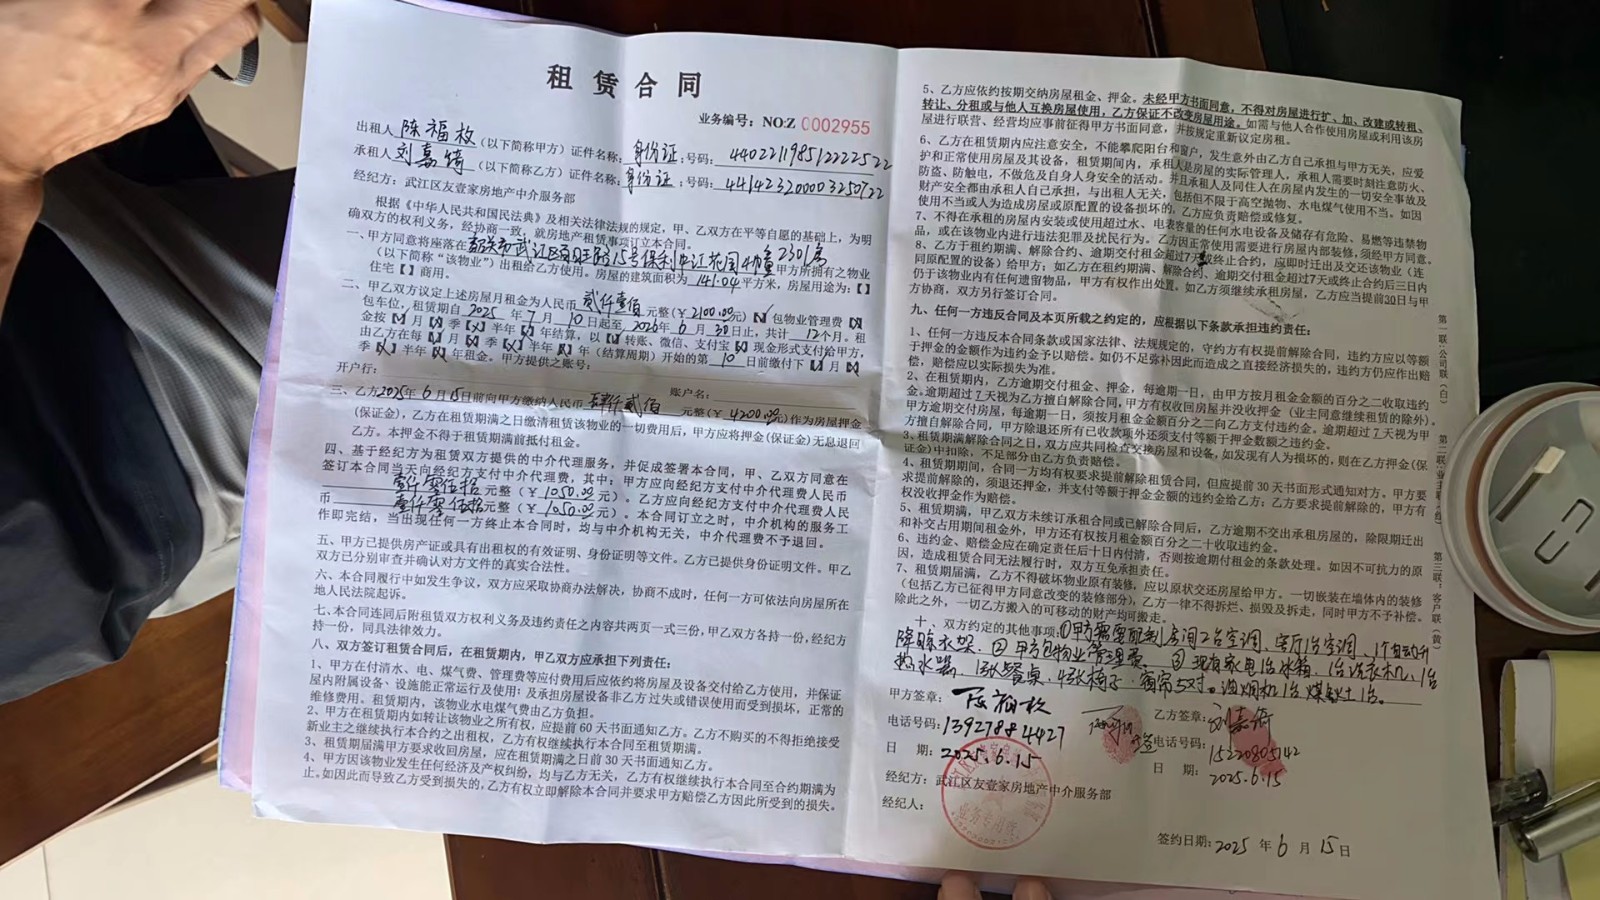 租赁合同
业务编号：NO:Z 0002955
出租人 陈福枚 （以下简称甲方）证件名称：身份证：号码：440221198512222522
承租人 刘嘉绮 （以下简称乙方）证件名称：身份证：号码：441423200003250722
经纪方：武江区友壹家房地产中介服务部
根据《中华人民共和国民法典》及相关法律法规的规定，甲、乙双方在平等自愿的基础上，为明
确双方的权利义务，经协商一致，就房地产租赁事项订立本合同。
一、甲方同意将座落在韶关市武江区百旺路15号保利中江花园 2301房甲方所拥有之物业
（以下简称“该物业”）出租给乙方使用。房屋的建筑面积为 141.04 平方米，房屋用途为：【】
住宅【】商用。
二、甲乙双方议定上述房屋月租金为人民币 贰仟壹佰 元整（￥2100.00元）包物业管理费
包车位，租赁期自 2025 年 7 月 10 日起至 2026 年 6 月 30 日止，共计 12 个月。租
金按 月 季 半年 年结算，以 转账、微信、支付宝 现金形式支付给甲方，
由乙方在每 月 季 半年 年（结算周期）开始的第 10 日前缴付下 月
季 半年 年租金。甲方提供之账号：
开户行： 账户名：
三、乙方2025年 6 月 15日前向甲方缴纳人民币 肆仟贰佰 元整（￥4200.00元）作为房屋押金
（保证金），乙方在租赁期满之日缴清租赁该物业的一切费用后，甲方应将押金（保证金）无息退回
乙方。本押金不得于租赁期满前抵付租金。
四、基于经纪方为租赁双方提供的中介代理服务，并促成签署本合同，甲、乙双方同意在
签订本合同当天向经纪方支付中介代理费，其中：甲方应向经纪方支付中介代理费人民币
壹仟零伍拾 元整（￥1050.00元）。乙方应向经纪方支付中介代理费人民
币 壹仟零伍拾 元整（￥1050.00元）。本合同订立之时，中介机构的服务工
作即完结，当出现任何一方终止本合同时，均与中介机构无关，中介代理费不予退回。
五、甲方已提供房产证或具有出租权的有效证明、身份证明等文件。乙方已提供身份证明文件。甲乙
双方已分别审查并确认对方文件的真实合法性。
六、本合同履行中如发生争议，双方应采取协商办法解决，协商不成时，任何一方可依法向房屋所在
地人民法院起诉。
七、本合同连同后附租赁双方权利义务及违约责任之内容共两页一式三份，甲乙双方各持一份，经纪方
持一份，同具法律效力。
八、双方签订租赁合同后，在租赁期内，甲乙双方应承担下列责任：
1、甲方在付清水、电、煤气费、管理费等应付费用后应依约将房屋及设备交付给乙方使用，并保证
屋内附属设备、设施能正常运行及使用；及承担房屋设备非乙方过失或错误使用而受到损坏，正常的
维修费用。租赁期内，该物业水电煤气费由乙方负担。
2、甲方在租赁期内如转让该物业之所有权，应提前 60 天书面通知乙方。乙方不购买的不得拒绝接受
新业主之继续执行本合约之出租权，乙方有权继续执行本合同至租赁期满。
3、租赁期届满甲方要求收回房屋，应在租赁期满之日前 30 天书面通知乙方。
4、甲方因该物业发生任何经济及产权纠纷，均与乙方无关，乙方有权继续执行本合同至合约期满为
止。如因此而导致乙方受到损失的，乙方有权立即解除本合同并要求甲方赔偿乙方因此所受到的损失。
5、乙方应依约按期交纳房屋租金、押金。未经甲方书面同意，不得对房屋进行扩、加、改建或转租、
转让、分租或与他人互换房屋使用，乙方保证不改变房屋用途。如需与他人合作使用房屋或利用该房
屋进行联营、经营均应事前征得甲方书面同意，并按规定重新议定房租。
6、乙方在租赁期内应注意安全，不能攀爬阳台和窗户，发生意外由乙方自己承担与甲方无关，应爱
护和正常使用房屋及其设备，租赁期间内，承租人是房屋的实际管理人，承租人需要时刻注意防火、
防盗、防触电，不做危及自身人身安全的活动。并且承租人及同住人在房屋内发生的一切安全事故及
财产安全都由承租人自己承担，与出租人无关，包括但不限于高空抛物、水电煤气使用不当。如因
使用不当或人为造成房屋或原配置的设备损坏的，乙方应负责赔偿或修复。
7、不得在承租的房屋内安装或使用超过水、电表容量的任何水电设备及储存有危险、易燃等违禁物
品，或在该物业内进行违法犯罪及扰民行为。乙方因正常使用需要进行房屋内部装修，须经甲方同意。
8、乙方于租约期满、解除合约、逾期交付租金超过7天或终止合约，应即时迁出及交还该物业（连
同原配置的设备）给甲方；如乙方在租约期满、解除合约、逾期交付租金超过7天或终止合约后三日内
仍于该物业内有任何遗留物品，甲方有权作出处置。如乙方须继续承租房屋，乙方应当提前30日与甲
方协商，双方另行签订合同。
九、任何一方违反合同及本页所载之约定的，应根据以下条款承担违约责任：
1、任何一方违反本合同条款或国家法律、法规规定的，守约方有权提前解除合同，违约方应以等额
于押金的金额作为违约金予以赔偿。如仍不足弥补因此而造成之直接经济损失的，违约方仍应作出赔
偿，赔偿应以实际损失为准。
2、在租赁期内，乙方逾期交付租金、押金，每逾期一日，由甲方按月租金金额的百分之二收取违约
金。逾期超过7天视为乙方擅自解除合同，甲方有权收回房屋并没收押金（业主同意继续租赁的除外）。
甲方逾期交付房屋，每逾期一日，须按月租金金额百分之二向乙方支付违约金。逾期超过7天视为甲
方擅自解除合同，甲方除退还所有已收款项外还须支付等额于押金数额之违约金。
3、租赁期满解除合同之日，双方应共同检查交换房屋和设备，如发现有人为损坏的，则在乙方押金（保
证金）中扣除，不足部分由乙方负责赔偿。
4、租赁期期间，合同一方均有权要求提前解除租赁合同，但应提前30天书面形式通知对方。甲方要
求提前解除的，须退还押金，并支付等额于押金金额的违约金给乙方；乙方要求提前解除的，甲方有
权没收押金作为赔偿。
5、租赁期满，甲乙双方未续订承租合同或已解除合同后，乙方逾期不交出承租房屋的，除限期迁出
和补交占用期间租金外，甲方还有权按月租金额百分之二十收取违约金。
6、违约金、赔偿金应在确定责任后十日内付清，否则按逾期付租金的条款处理。如因不可抗力的原
因，造成租赁合同无法履行时，双方互免承担责任。
7、租赁期届满，乙方不得破坏物业原有装修，应以原状交还房屋给甲方。一切嵌装在墙体内的装修
（包括乙方已征得甲方同意改变的装修部分），乙方一律不得拆烂、损毁及拆走，同时甲方不予补偿。
除此之外，一切乙方搬入的可移动的财产均可搬走。
十、双方约定的其他事项：①甲方需配制房间2台空调、客厅1台空调、1个自动升
降晾衣架、②甲方包物业管理费。③现有家电1台冰箱、1台洗衣机、1台
热水器，1张餐桌，4张椅子，窗帘5对。油烟机1台煤气灶1台。
甲方签章：陈福枚
乙方签章：刘嘉绮
电话号码：13927884427
电话号码：15220805142
日 期：2025.6.15
日 期：2025.6.15
经纪方：武江区友壹家房地产中介服务部
经纪人：
业务专用章
签约日期：2025 年 6 月 15 日
第一联：公司联（白）
第二联：业主联
第三联：客户联（黄）